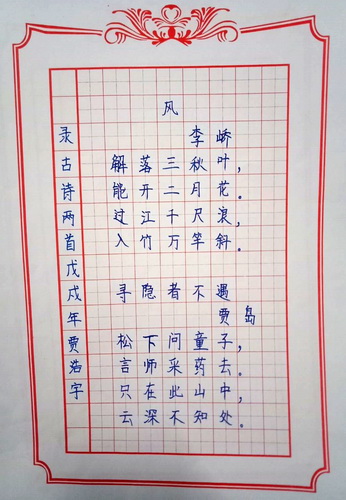 风
李峤
解落三秋叶，
能开二月花。
过江千尺浪，
入竹万竿斜。
寻隐者不遇
贾岛
松下问童子，
言师采药去。
只在此山中，
云深不知处。
录古诗两首戊戌年贾浩宇